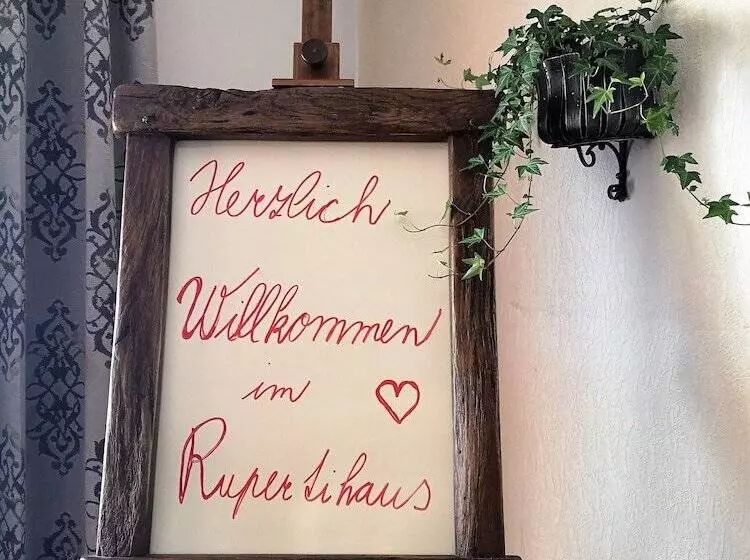 Herzlich
Willkommen
im
Rupertihaus